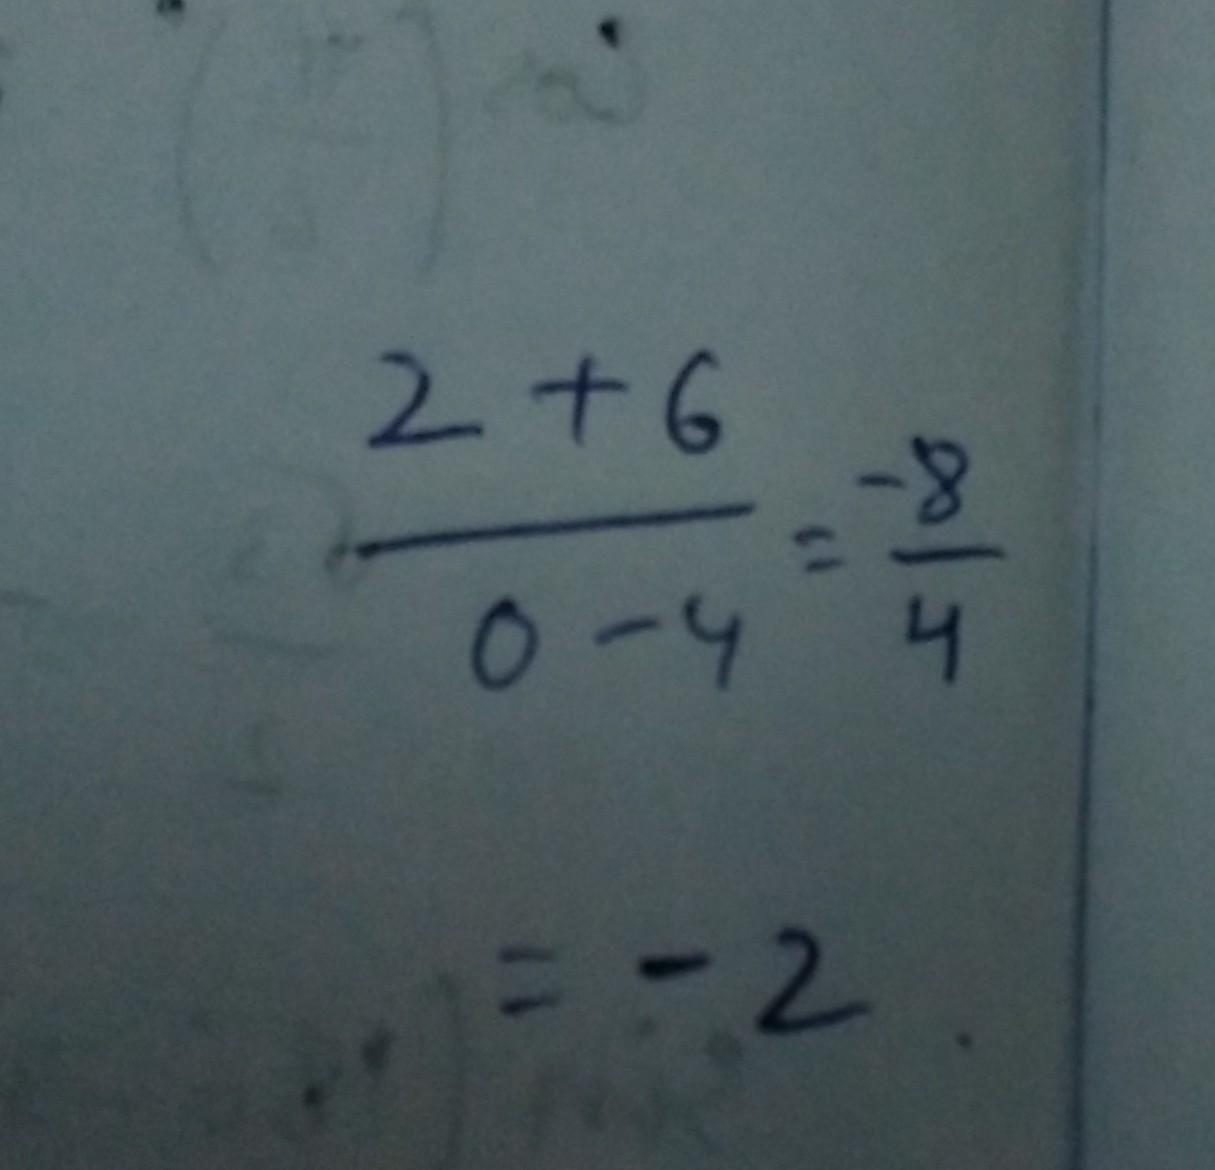 2 + 6
0 - 4 = -8
4
= - 2 .